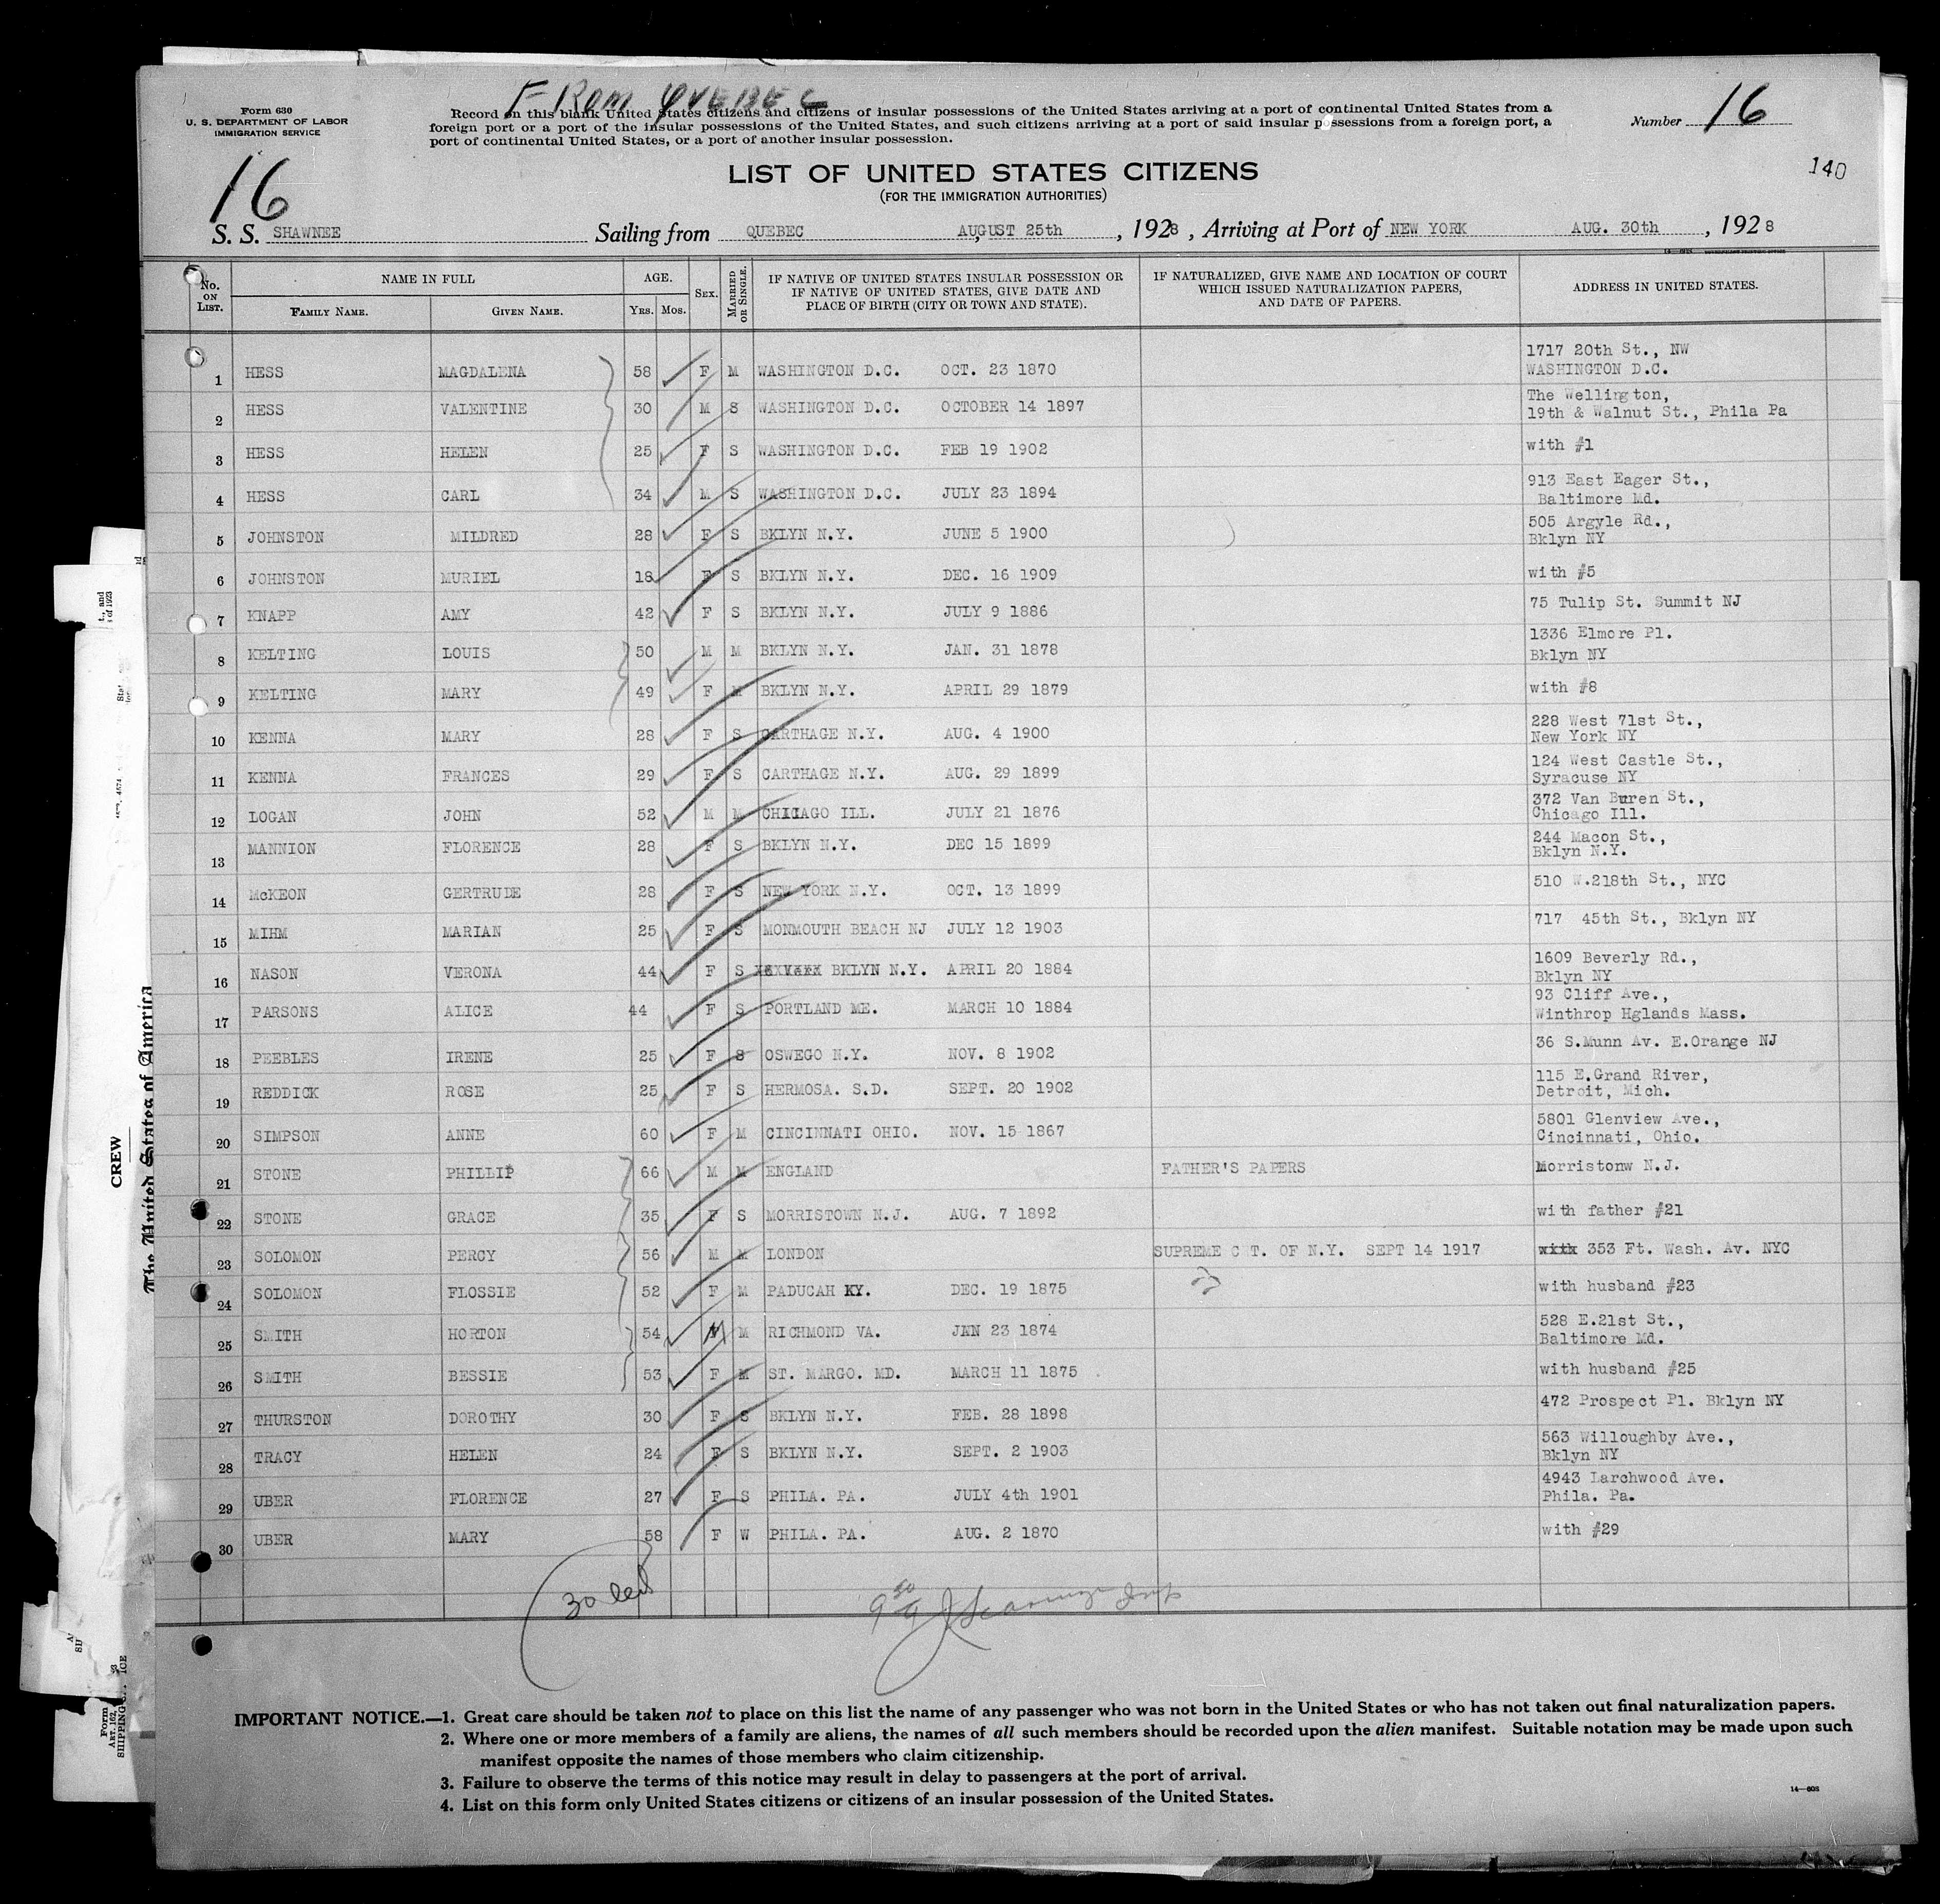 FROM QUEBEC
Form 630
U. S. DEPARTMENT OF LABOR
IMMIGRATION SERVICE
Record on this blank United States citizens and citizens of insular possessions of the United States arriving at a port of continental United States from a
foreign port or a port of the insular possessions of the United States, and such citizens arriving at a port of said insular possessions from a foreign port, a
port of continental United States, or a port of another insular possession.
Number 16
16
LIST OF UNITED STATES CITIZENS
(FOR THE IMMIGRATION AUTHORITIES)
140
S. S. SHAWNEE Sailing from QUEBEC AUGUST 25th, 1928, Arriving at Port of NEW YORK AUG. 30th, 1928
No. ON LIST. NAME IN FULL FAMILY NAME. GIVEN NAME. AGE. YRS. MOS. SEX. MARRIED OR SINGLE. IF NATIVE OF UNITED STATES INSULAR POSSESSION OR IF NATIVE OF UNITED STATES, GIVE DATE AND PLACE OF BIRTH (CITY OR TOWN AND STATE). IF NATURALIZED, GIVE NAME AND LOCATION OF COURT WHICH ISSUED NATURALIZATION PAPERS, AND DATE OF PAPERS. ADDRESS IN UNITED STATES.
1 HESS MAGDALENA 58 F M WASHINGTON D.C. OCT. 23 1870 1717 20th St., NW WASHINGTON D.C.
2 HESS VALENTINE 30 M S WASHINGTON D.C. OCTOBER 14 1897 The Wellington, 19th & Walnut St., Phila Pa
3 HESS HELEN 25 F S WASHINGTON D.C. FEB 19 1902 with #1
4 HESS CARL 34 M S WASHINGTON D.C. JULY 23 1894 913 East Eager St., Baltimore Md.
5 JOHNSTON MILDRED 28 F S BKLYN N.Y. JUNE 5 1900 505 Argyle Rd., Bklyn NY
6 JOHNSTON MURIEL 18 F S BKLYN N.Y. DEC. 16 1909 with #5
7 KNAPP AMY 42 F S BKLYN N.Y. JULY 9 1886 75 Tulip St. Summit NJ
8 KELTING LOUIS 50 M M BKLYN N.Y. JAN. 31 1878 1336 Elmore Pl. Bklyn NY
9 KELTING MARY 49 F M BKLYN N.Y. APRIL 29 1879 with #8
10 KENNA MARY 28 F S CARTHAGE N.Y. AUG. 4 1900 228 West 71st St., New York NY
11 KENNA FRANCES 29 F S CARTHAGE N.Y. AUG. 29 1899 124 West Castle St., Syracuse NY
12 LOGAN JOHN 52 M M CHICAGO ILL. JULY 21 1876 372 Van Buren St., Chicago Ill.
13 MANNION FLORENCE 28 F S BKLYN N.Y. DEC 15 1899 244 Macon St., Bklyn N.Y.
14 McKEON GERTRUDE 28 F S NEW YORK N.Y. OCT. 13 1899 510 W.218th St., NYC
15 MIHM MARIAN 25 F S MONMOUTH BEACH NJ JULY 12 1903 717 45th St., Bklyn NY
16 NASON VERONA 44 F S BKLYN N.Y. APRIL 20 1884 1609 Beverly Rd., Bklyn NY
17 PARSONS ALICE 44 F S PORTLAND ME. MARCH 10 1884 93 Cliff Ave., Winthrop Hglands Mass.
18 PEEBLES IRENE 25 F S OSWEGO N.Y. NOV. 8 1902 36 S.Munn Av. E.Orange NJ
19 REDDICK ROSE 25 F S HERMOSA. S.D. SEPT. 20 1902 115 E.Grand River, Detroit, Mich.
20 SIMPSON ANNE 60 F M CINCINNATI OHIO. NOV. 15 1867 5801 Glenview Ave., Cincinnati, Ohio.
21 STONE PHILLIP 66 M M ENGLAND FATHER'S PAPERS Morristonw N.J.
22 STONE GRACE 35 F S MORRISTOWN N.J. AUG. 7 1892 with father #21
23 SOLOMON PERCY 56 M M LONDON SUPREME C T. OF N.Y. SEPT 14 1917 with 353 Ft. Wash. Av. NYC
24 SOLOMON FLOSSIE 52 F M PADUCAH KY. DEC. 19 1875 with husband #23
25 SMITH HORTON 54 M M RICHMOND VA. JAN 23 1874 528 E.21st St., Baltimore Md.
26 SMITH BESSIE 53 F M ST. MARGO. MD. MARCH 11 1875 with husband #25
27 THURSTON DOROTHY 30 F S BKLYN N.Y. FEB. 28 1898 472 Prospect Pl. Bklyn NY
28 TRACY HELEN 24 F S BKLYN N.Y. SEPT. 2 1903 563 Willoughby Ave., Bklyn NY
29 UBER FLORENCE 27 F S PHILA. PA. JULY 4th 1901 4943 Larchwood Ave. Phila. Pa.
30 UBER MARY 58 F W PHILA. PA. AUG. 2 1870 with #29
30
IMPORTANT NOTICE.—1. Great care should be taken not to place on this list the name of any passenger who was not born in the United States or who has not taken out final naturalization papers.
2. Where one or more members of a family are aliens, the names of all such members should be recorded upon the alien manifest. Suitable notation may be made upon such
manifest opposite the names of those members who claim citizenship.
3. Failure to observe the terms of this notice may result in delay to passengers at the port of arrival.
4. List on this form only United States citizens or citizens of an insular possession of the United States.
14—608
The United States of America
CREW